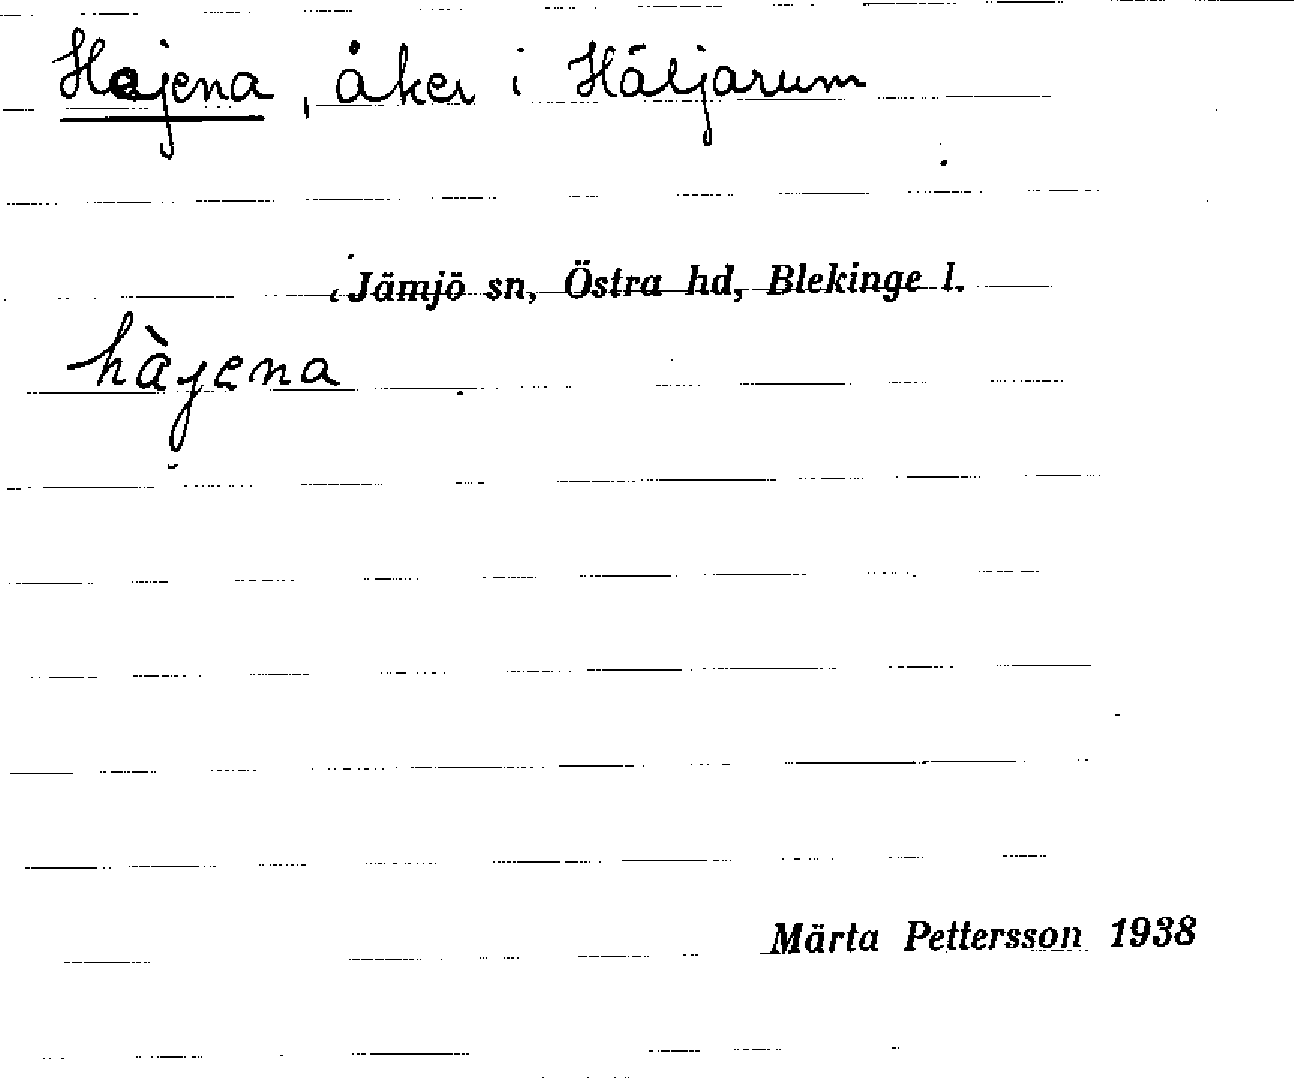 Hajena, åker i Häljarum
i Jämjö sn, Östra hd, Blekinge l.
hàjena
Märta Pettersson 1938